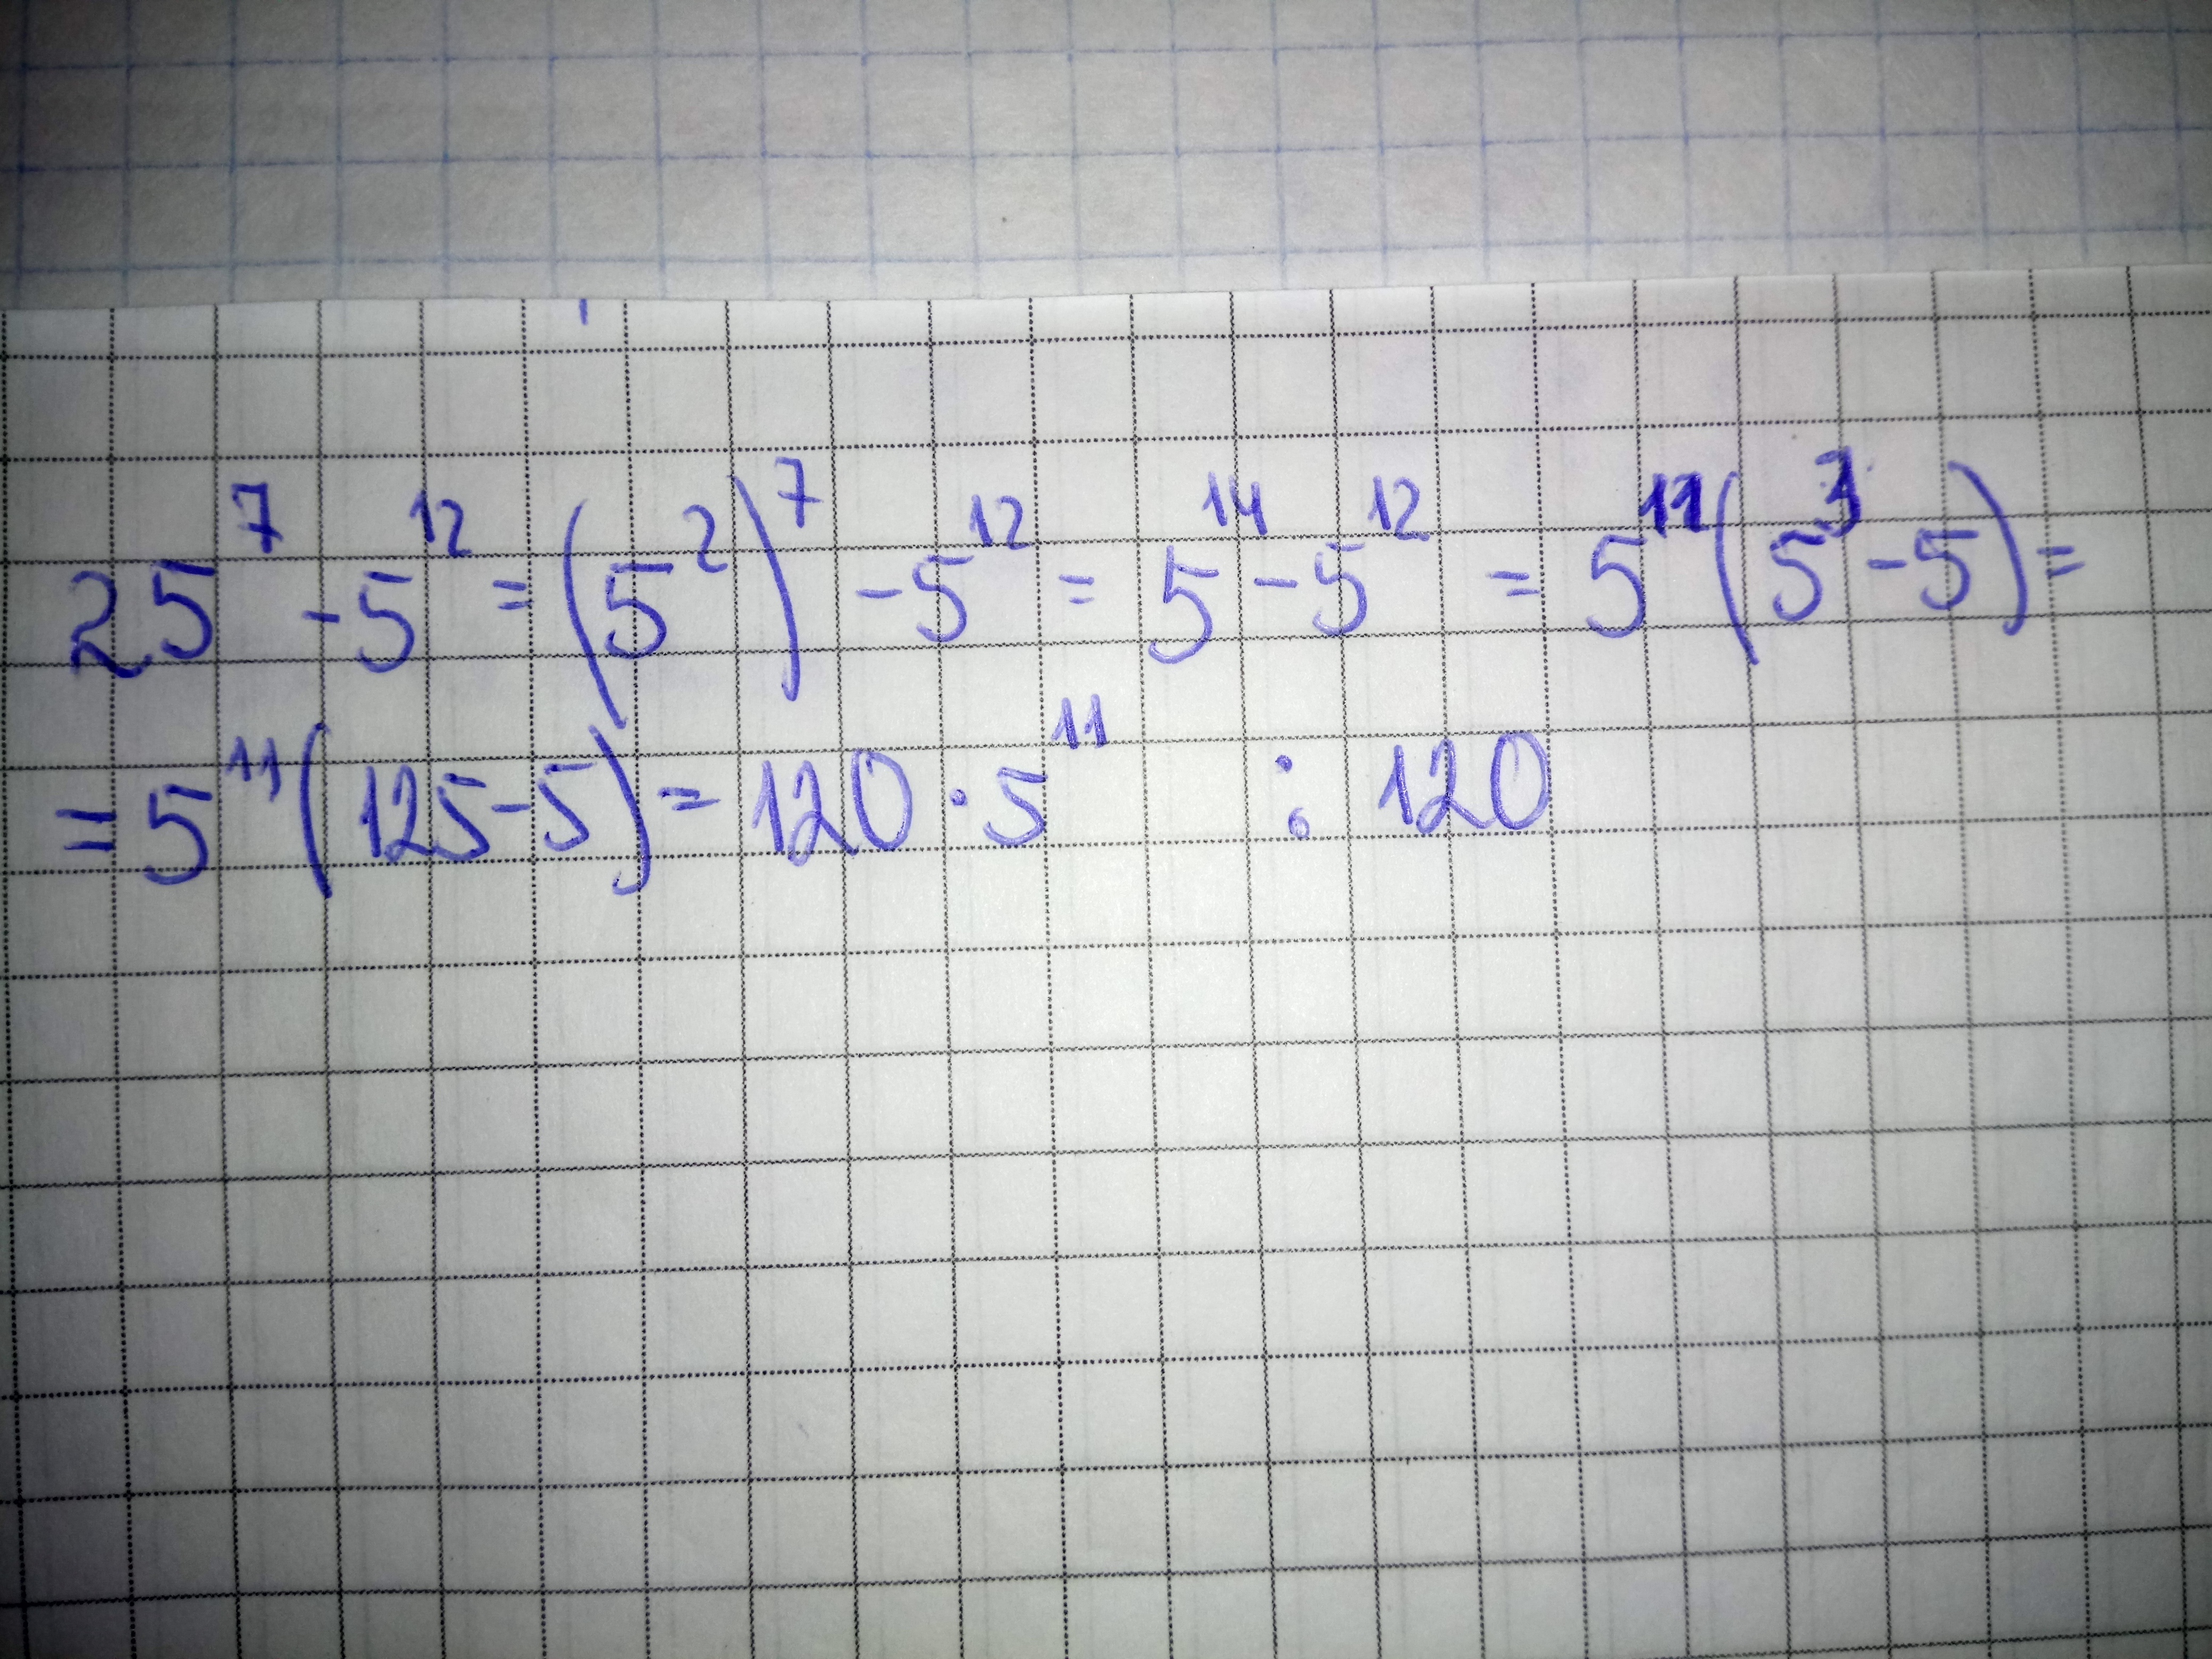 25⁷ - 5¹² = (5²)⁷ - 5¹² = 5¹⁴ - 5¹² = 5¹¹(5³ - 5) =
= 5¹¹(125 - 5) = 120 · 5¹¹ : 120